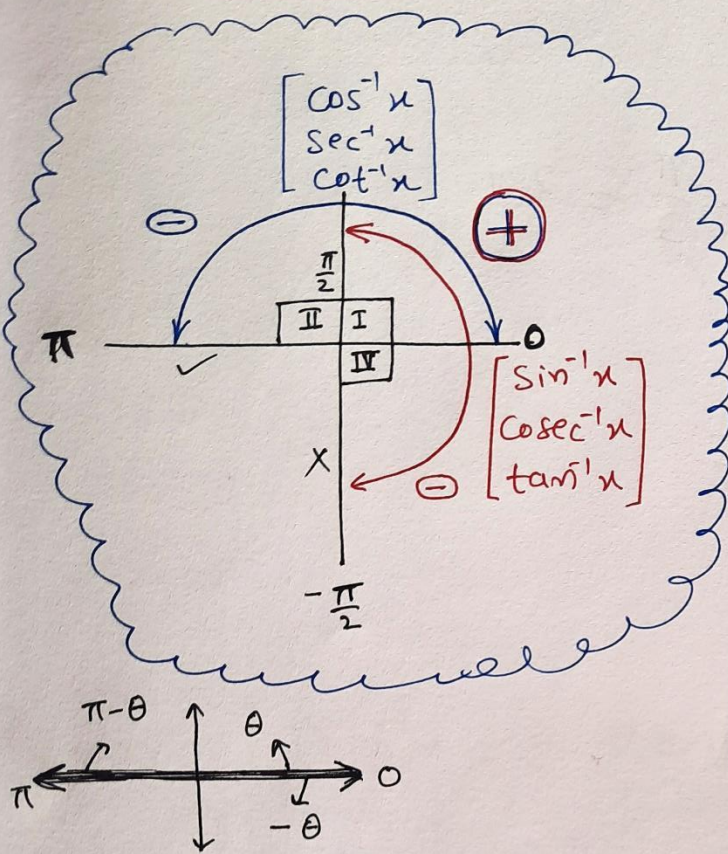 cos⁻¹x
sec⁻¹x
cot⁻¹x
⊖
+
π/2
II I
π 0
✓
IV
sin⁻¹x
cosec⁻¹x
tan⁻¹x
×
⊖
-π/2
π-θ
θ
π 0
-θ